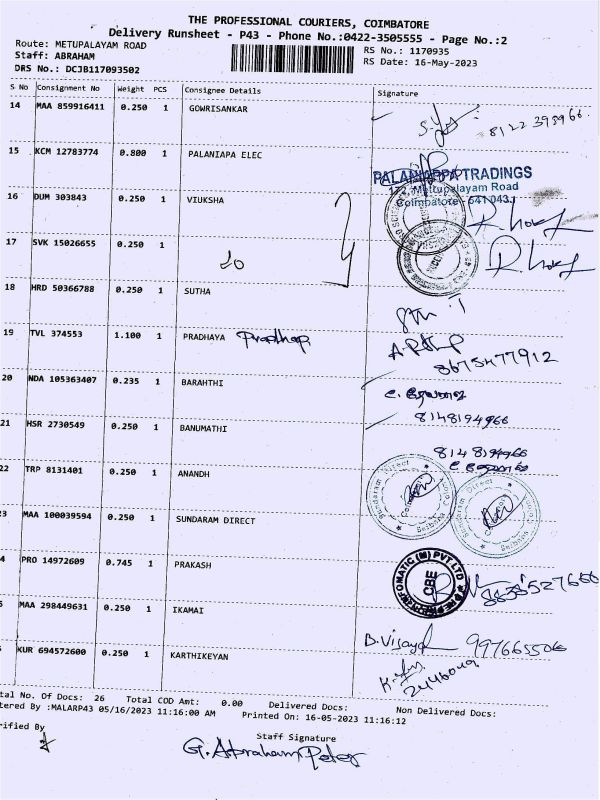 THE PROFESSIONAL COURIERS, COIMBATORE
Delivery Runsheet - P43 - Phone No.:0422-3505555 - Page No.:2
Route: METUPALAYAM ROAD RS No.: 1170935
Staff: ABRAHAM RS Date: 16-May-2023
DRS No.: DCJB117093502
S No Consignment No Weight PCS Consignee Details Signature
14 MAA 859916411 0.250 1 GOWRISANKAR
8122 395966
15 KCM 12783774 0.800 1 PALANIAPA ELEC
PALANIAPPA TRADINGS
172, Mettupalayam Road
Coimbatore - 641 043
16 DUM 303843 0.250 1 VIUKSHA
17 SVK 15026655 0.250 1
18 HRD 50366788 0.250 1 SUTHA
19 TVL 374553 1.100 1 PRADHAYA Pradhap
8675477912
20 NDA 105363407 0.235 1 BARAHTHI
8148194966
21 HSR 2730549 0.250 1 BANUMATHI
8148194966
22 TRP 8131401 0.250 1 ANANDH
Sundaram Direct
Sundaram Direct
3 MAA 100039594 0.250 1 SUNDARAM DIRECT
4 PRO 14972609 0.745 1 PRAKASH
(M) PVT LTD
CBE
8838527666
MAA 298449631 0.250 1 IKAMAI
B. Vijaya 997665506
KUR 694572600 0.250 1 KARTHIKEYAN
2446049
tal No. Of Docs: 26 Total COD Amt: 0.00 Delivered Docs: Non Delivered Docs:
tered By :MALARP43 05/16/2023 11:16:00 AM Printed On: 16-05-2023 11:16:12
rified By Staff Signature
G. Abraham Peter